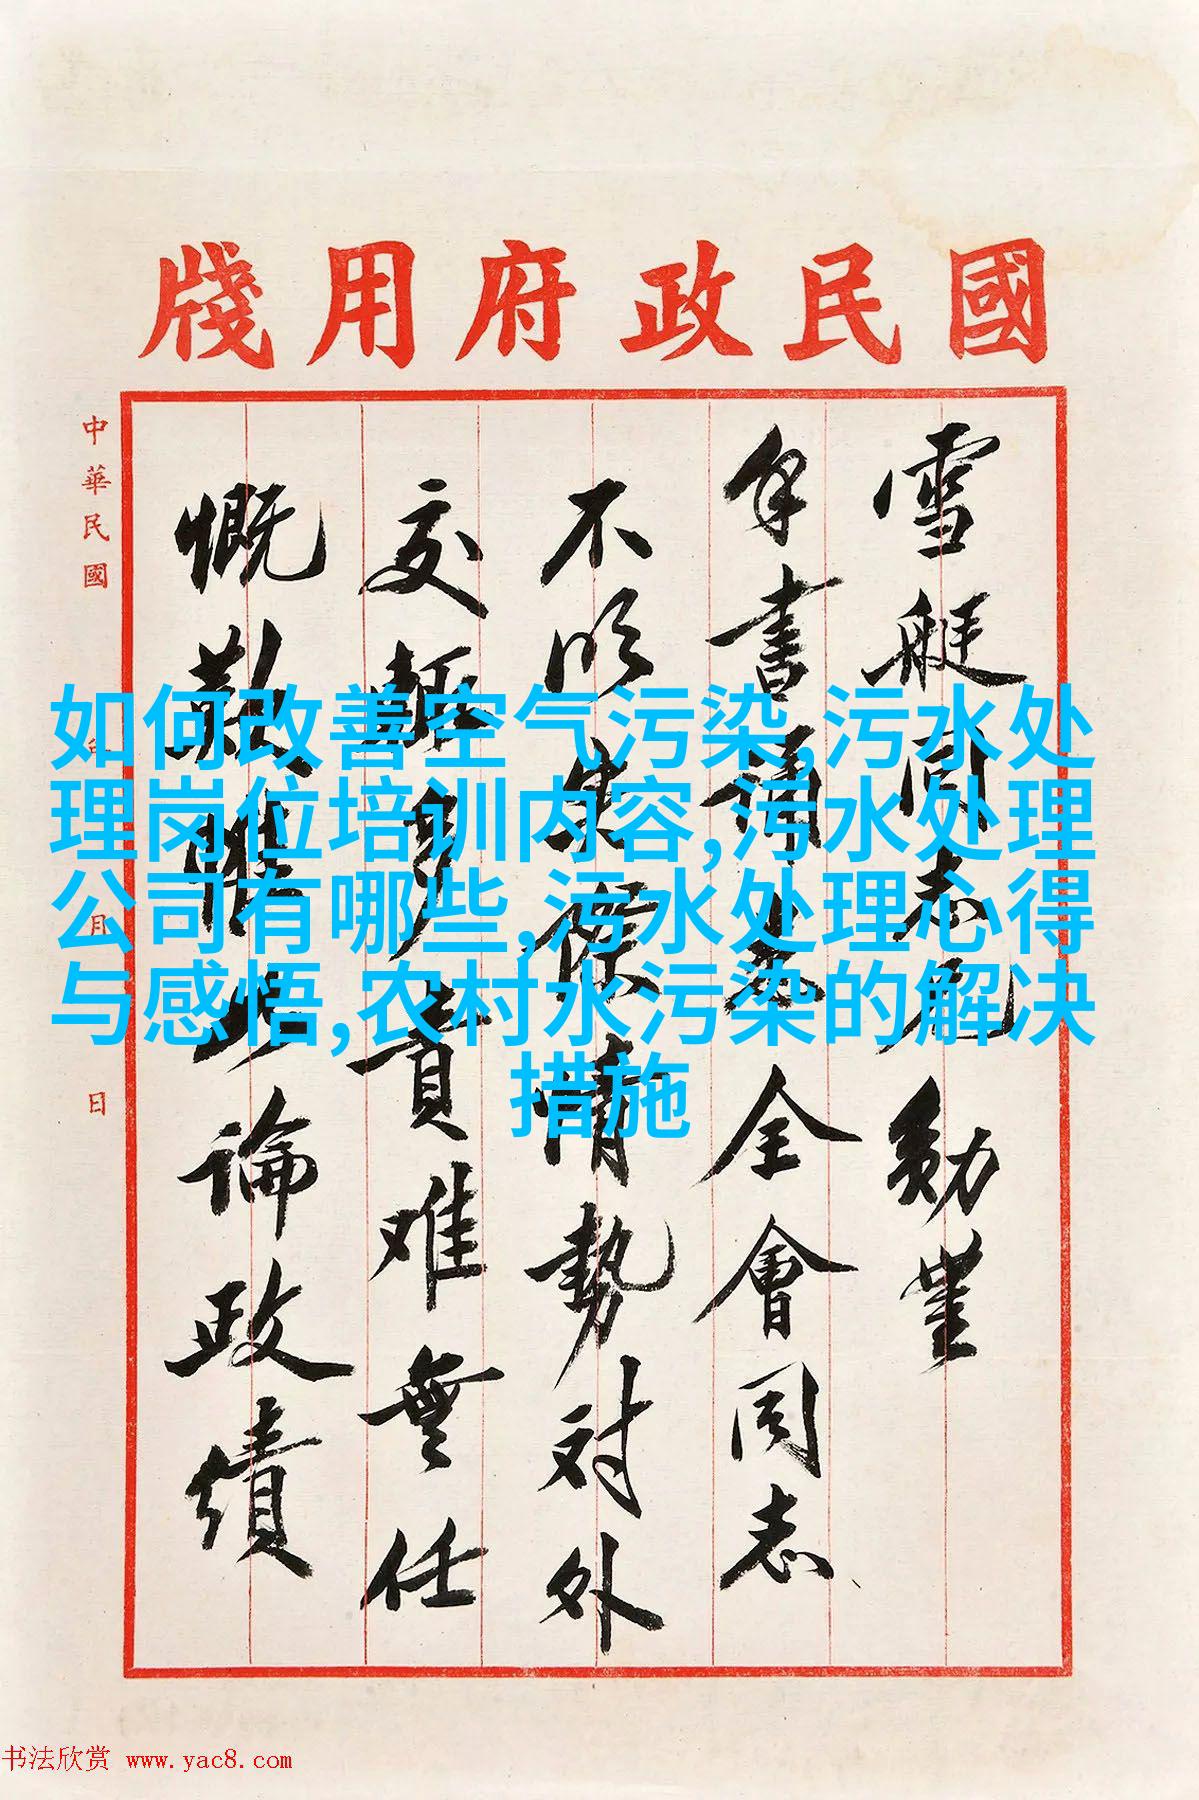 國民政府用牋
雪艇同志兄勛
手書誦悉全會同志
不以情勢对外
交輒多責难無任
慨歎惟論政績
中華民國 年 月 日
如何改善空气污染,污水处
理岗位培训内容,污水处理
公司有哪些,污水处理心得
与感悟,农村水污染的解决
措施
书法欣赏 www.yac8.com